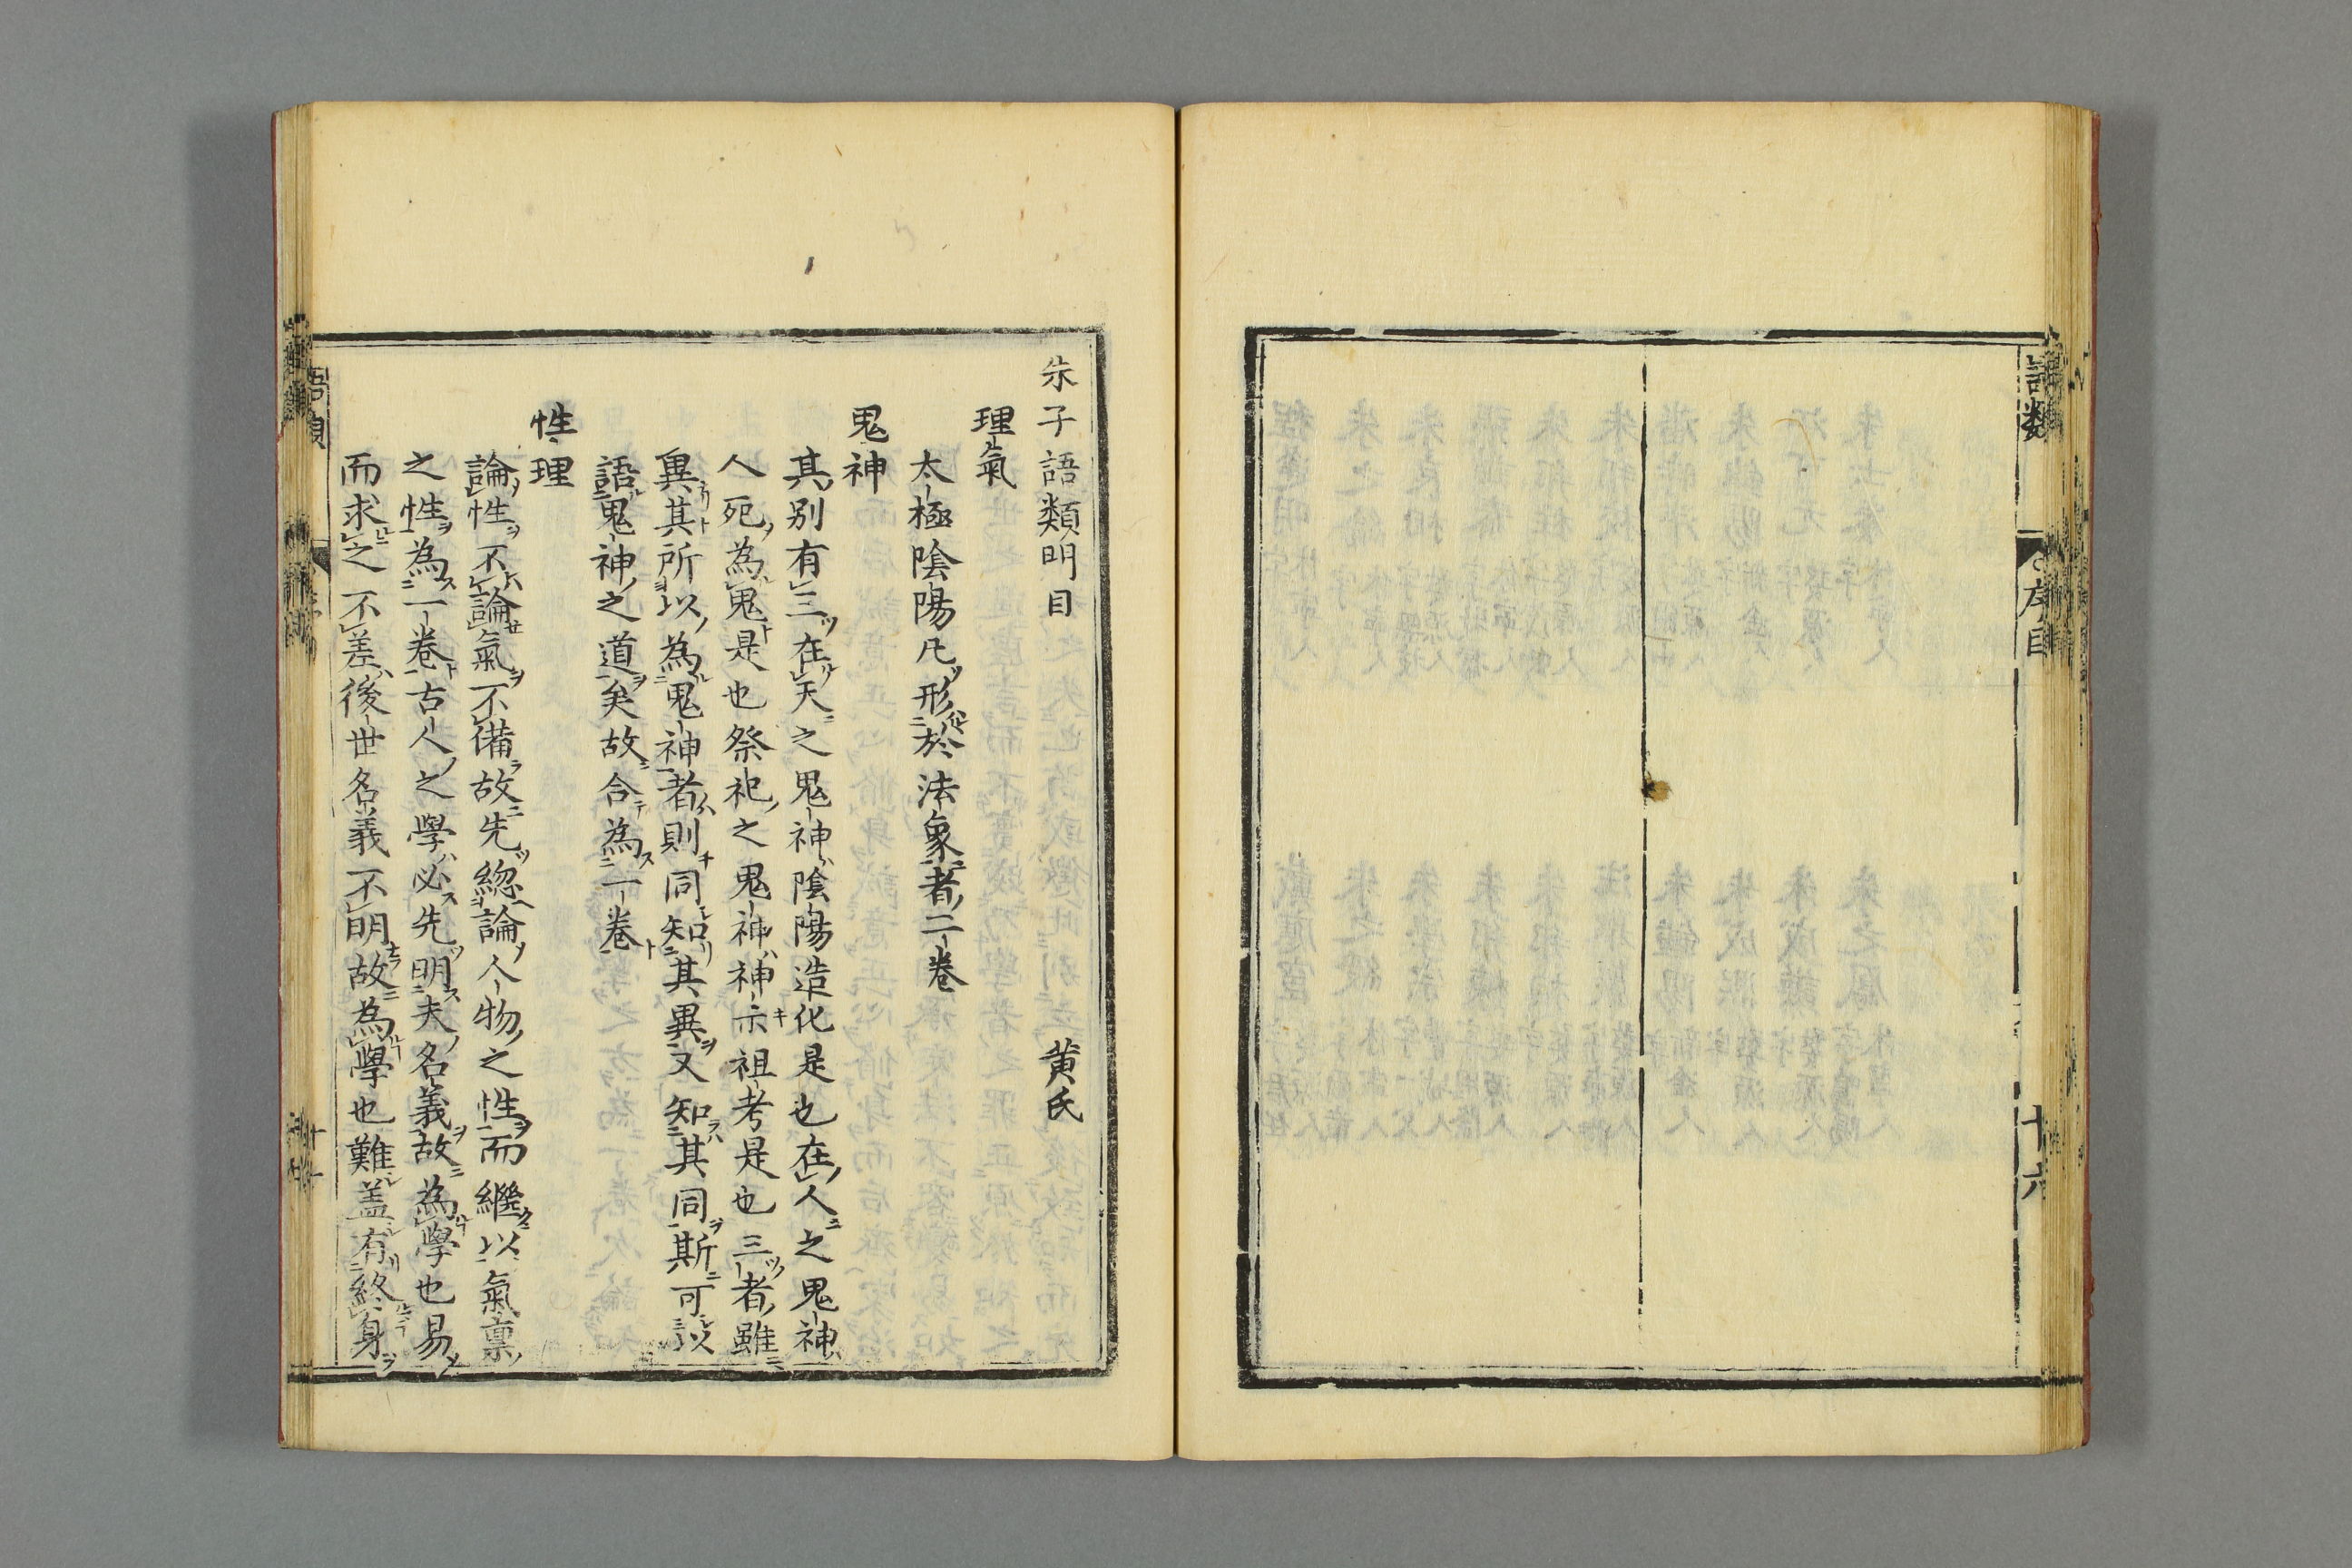 語類 序目 十六
朱子語類明目 黄氏
理氣
太極陰陽凡形於法象者二卷
鬼神
其別有三在天之鬼神陰陽造化是也在人之鬼神
人死為鬼是也祭祀之鬼神神示祖考是也三者雖
異其所以為鬼神者則同知其異又知其同斯可以
語鬼神之道矣故合為一卷
性理
論性不論氣不備故先緫論人物之性而繼以氣禀
之性為一卷古人之學必先明夫名義故為學也易
而求之不差後世名義不明故為學也難盖有終身